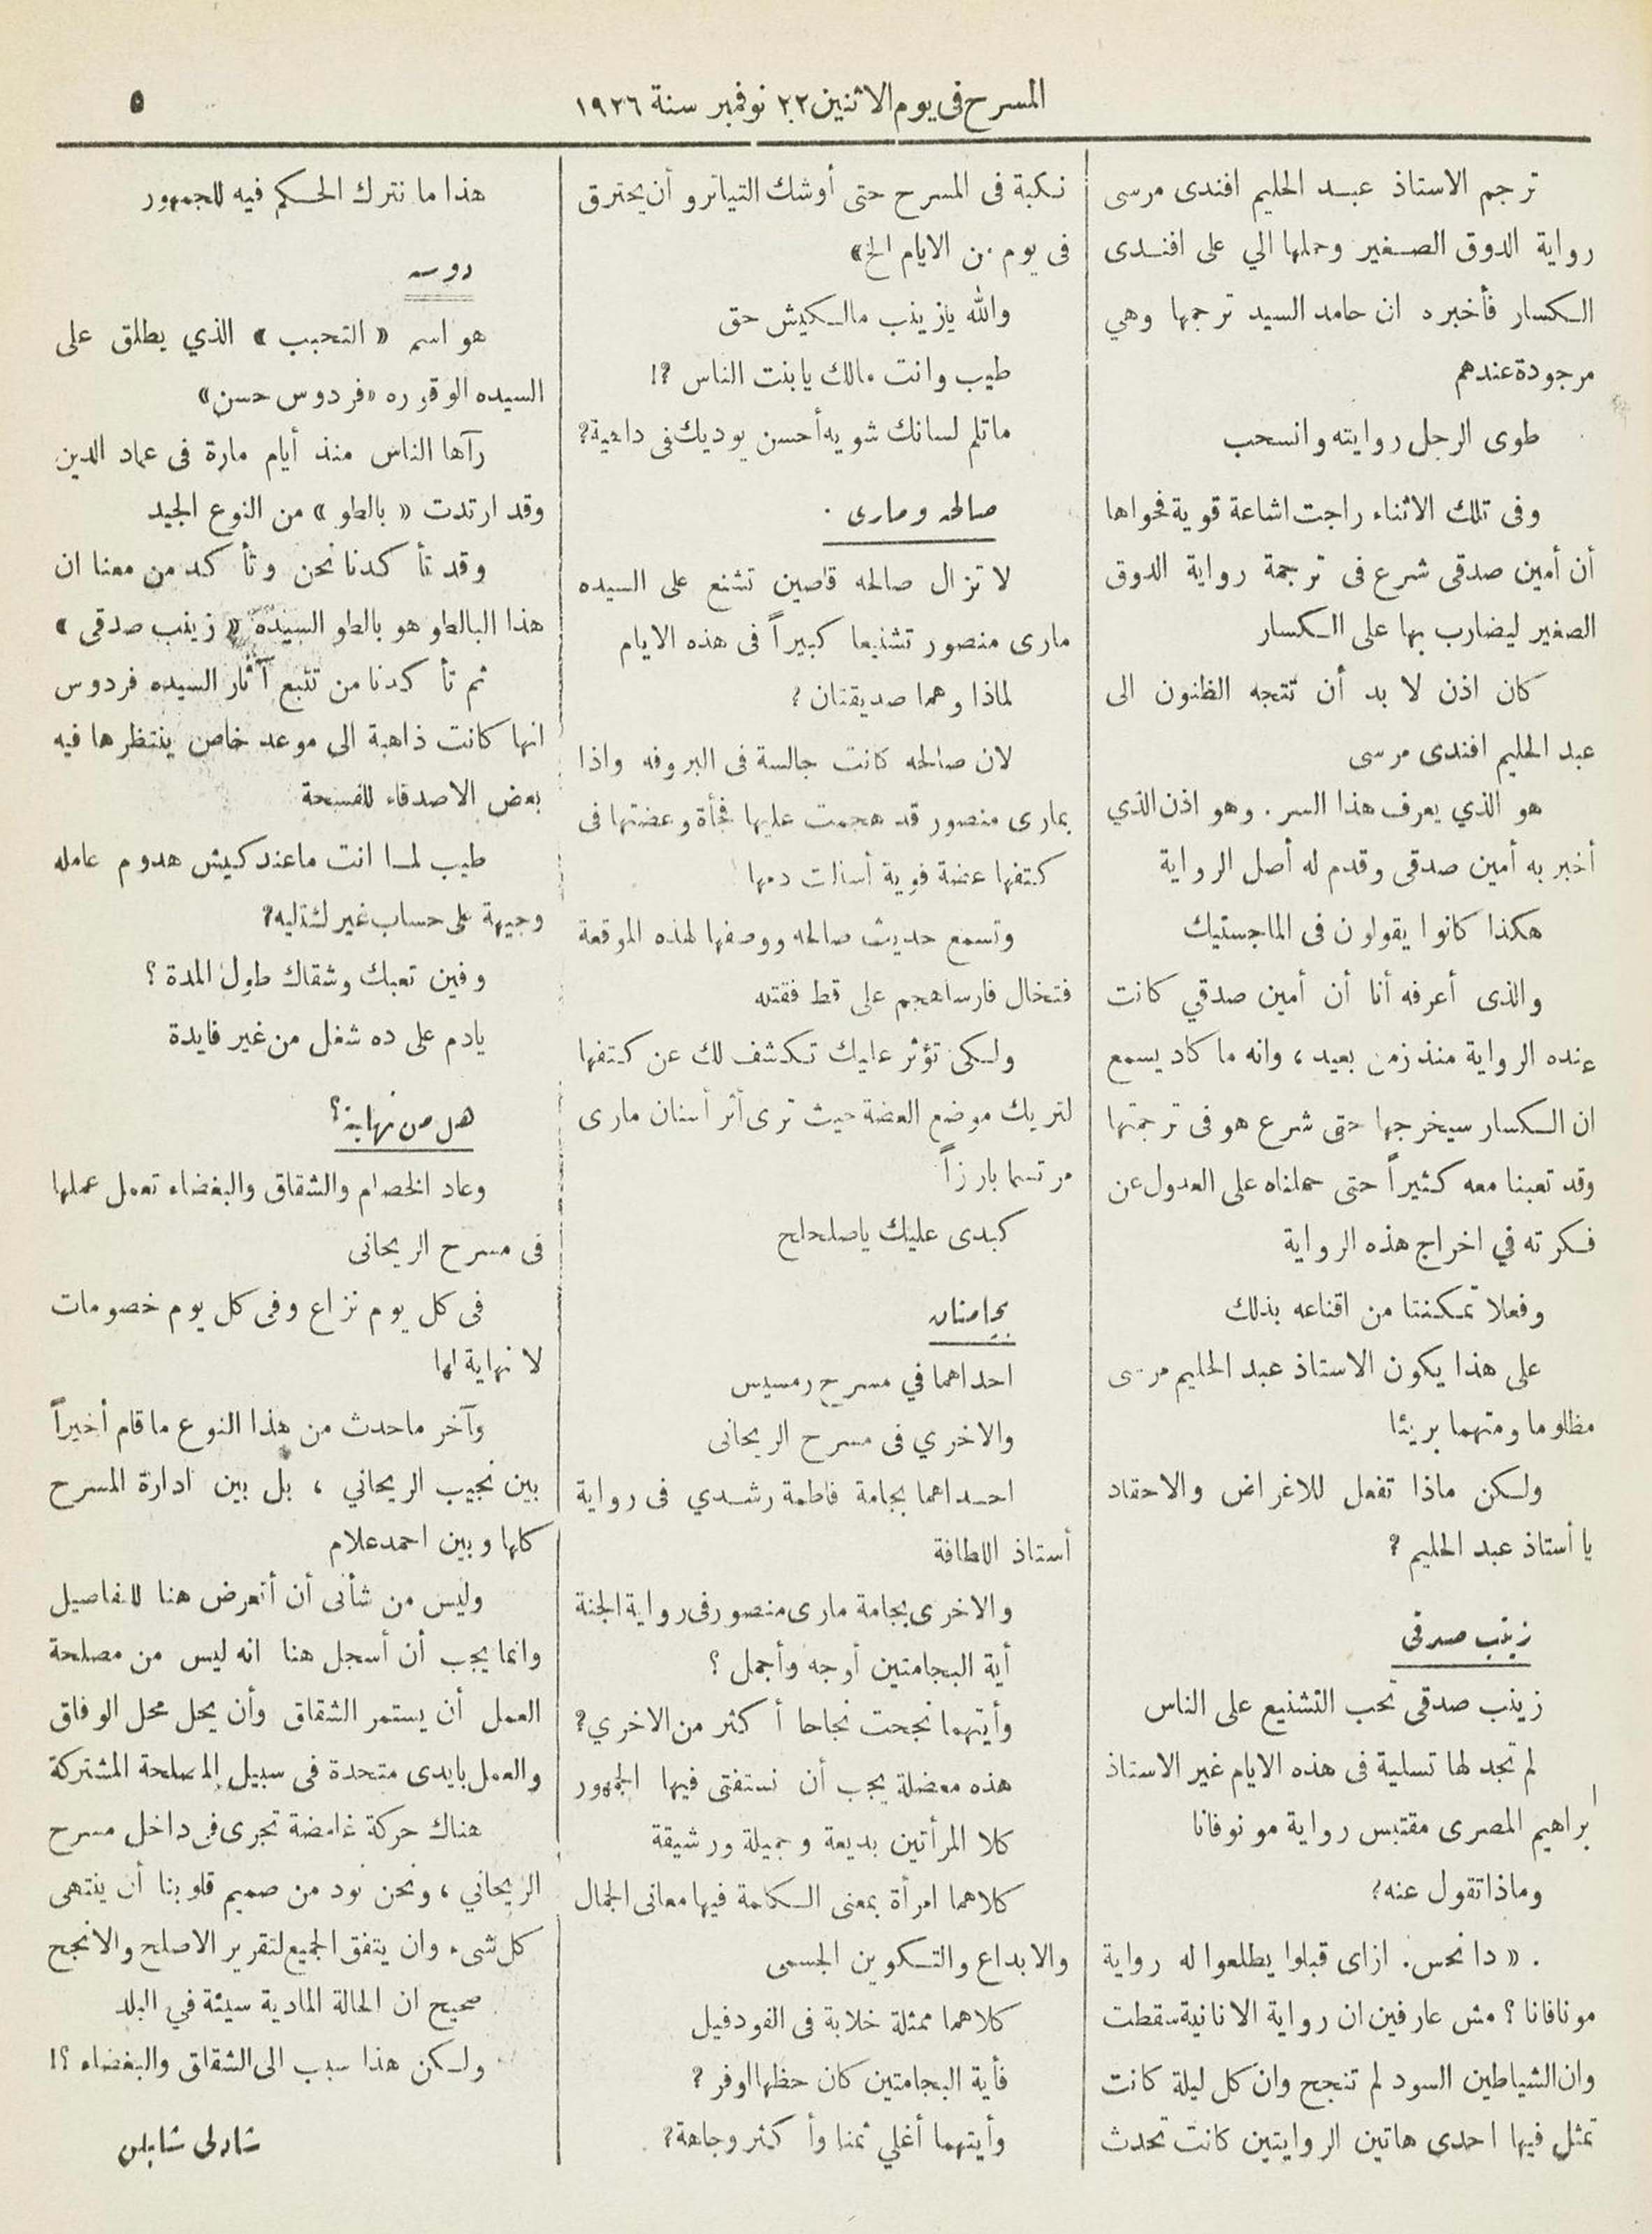 المسرح فى يوم الاثنين ٢٢ نوفمبر سنة ١٩٢٦
٥
ترجم الاستاذ عبد الحليم افندى مرسى
رواية الدوق الصغير وحملها الي على افندى
الكسار فأخبره ان حامد السيد ترجمها وهي
مرجودة عندهم
طوى الرجل روايته وانسحب
وفى تلك الاثناء راجت اشاعة قوية فحواها
أن أمين صدقى شرع فى ترجمة رواية الدوق
الصغير ليضارب بها على الكسار
كان اذن لا بد أن تتجه الظنون الى
عبد الحليم افندى مرسى
هو الذي يعرف هذا السر . وهو اذن الذي
أخبر به أمين صدقى وقدم له أصل الرواية
هكذا كانوا يقولون فى الماجستيك
والذى أعرفه أنا أن أمين صدقي كانت
عنده الرواية منذ زمن بعيد ، وانه ما كاد يسمع
ان الكسار سيخرجها حتى شرع هو فى ترجمتها
وقد تعبنا معه كثيراً حتى حملناه على العدول عن
فكرته في اخراج هذه الرواية
وفعلا تمكنتا من اقناعه بذلك
على هذا يكون الاستاذ عبد الحليم مرسى
مظلوما ومتهما بريئا
ولكن ماذا تفعل للاغراض والاحقاد
يا أستاذ عبد الحليم ؟
زينب صدقى
زينب صدقى تحب التشنيع على الناس
لم تجد لها تسلية فى هذه الايام غير الاستاذ
ابراهيم المصرى مقتبس رواية مونوفانا
وماذا تقول عنه ؟
. « دا نحس . ازاى قبلوا يطلعوا له رواية
مونافانا ؟ مش عارفين ان رواية الانانية سقطت
وان الشياطين السود لم تنجح وان كل ليلة كانت
تمثل فيها احدى هاتين الروايتين كانت تحدث
نكبة فى المسرح حتى أوشك التياترو أن يحترق
فى يوم من الايام الخ »
والله يازينب مالكيش حق
طيب وانت مالك يا بنت الناس ؟!
ماتلم لسانك شويه أحسن يوديك فى داهية ؟
صالحه ومارى .
لا تزال صالحه قاصين تشنع على السيده
مارى منصور تشنيعا كبيراً فى هذه الايام
لماذا وهما صديقتان ؟
لان صالحه كانت جالسة فى البروفه واذا
بمارى منصور قد هجمت عليها فجأة وعضتها فى
كتفها عضة قوية أسالت دمها
وتسمع حديث صالحه ووصفها لهذه الموقعة
فتخال فارسا هجم على قط فقتله
ولكى تؤثر عليك تكشف لك عن كتفها
لتريك موضع العضة حيث ترى أثر أسنان مارى
مرتسما بارزاً
كبدى عليك ياصلحلح
بجامتان
احداهما في مسرح رمسيس
والاخري فى مسرح الريحانى
احداهما بجامة فاطمة رشدي فى رواية
أستاذ اللطافة
والاخرى بجامة مارى منصور فى رواية الجنة
أية البجامتين أوجه وأجمل ؟
وأيتهما نجحت نجاحا أكثر من الاخري ؟
هذه معضلة يجب أن نستفتى فيها الجمهور
كلا المرأتين بديعة وجميلة ورشيقة
كلاهما امرأة بمعنى الكلمة فيها معانى الجمال
والابداع والتكوين الجسمى
كلاهما ممثلة خلابة فى الفودفيل
فأية البجامتين كان حظها اوفر ؟
وأيتهما أغلي ثمنا وأكثر وجاهة ؟
هذا ما نترك الحكم فيه للجمهور
دوسه
هو اسم « التحبب » الذي يطلق على
السيده الوقوره « فردوس حسن »
رآها الناس منذ أيام مارة فى عماد الدين
وقد ارتدت « بالطو » من النوع الجيد
وقد تأكدنا نحن وتأكد من معنا ان
هذا البالطو هو بالطو السيدة « زينب صدقى »
ثم تأكدنا من تتبع آثار السيده فردوس
انها كانت ذاهبة الى موعد خاص ينتظرها فيه
بعض الاصدقاء للفسحة
طيب لما انت ماعندكيش هدوم عامله
وجيهة على حساب غيرك ليه ؟
وفين تعبك وشقاك طول المدة ؟
يادم على ده شغل من غير فايدة
هل من نهاية ؟
وعاد الخصام والشقاق والبغضاء تعمل عملها
فى مسرح الريحانى
فى كل يوم نزاع وفى كل يوم خصومات
لا نهاية لها
وآخر ماحدث من هذا النوع ما قام أخيراً
بين نجيب الريحاني ، بل بين ادارة المسرح
كلها وبين احمد علام
وليس من شأنى أن أتعرض هنا للتفاصيل
وانما يجب أن أسجل هنا انه ليس من مصلحة
العمل أن يستمر الشقاق وأن يحل محل الوفاق
والعمل بايدى متحدة فى سبيل المصلحة المشتركة
هناك حركة غامضة تجرى فى داخل مسرح
الريحاني ، ونحن نود من صميم قلوبنا أن ينتهى
كل شىء وان يتفق الجميع لتقرير الاصلح والانجح
صحيح ان الحالة المادية سيئة في البلد
ولكن هذا سبب الى الشقاق والبغضاء ؟!
شارلى شابلن